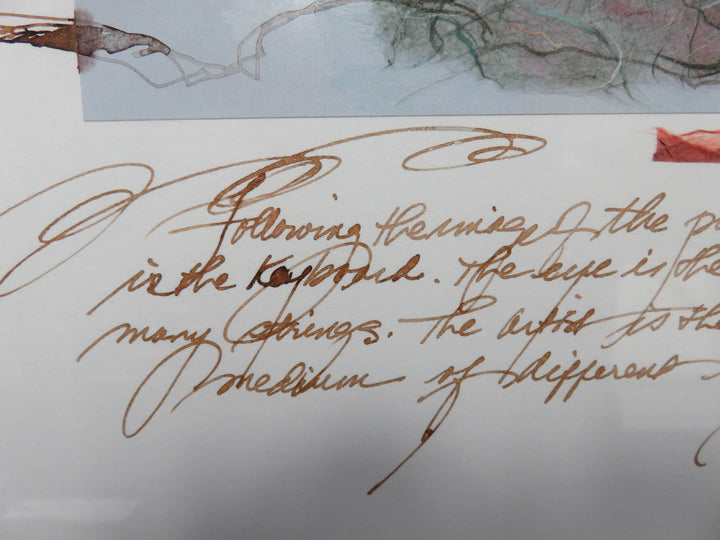 Following the image of the p
is the Keyboard. The eye is the
many strings. The artist is th
medium of different